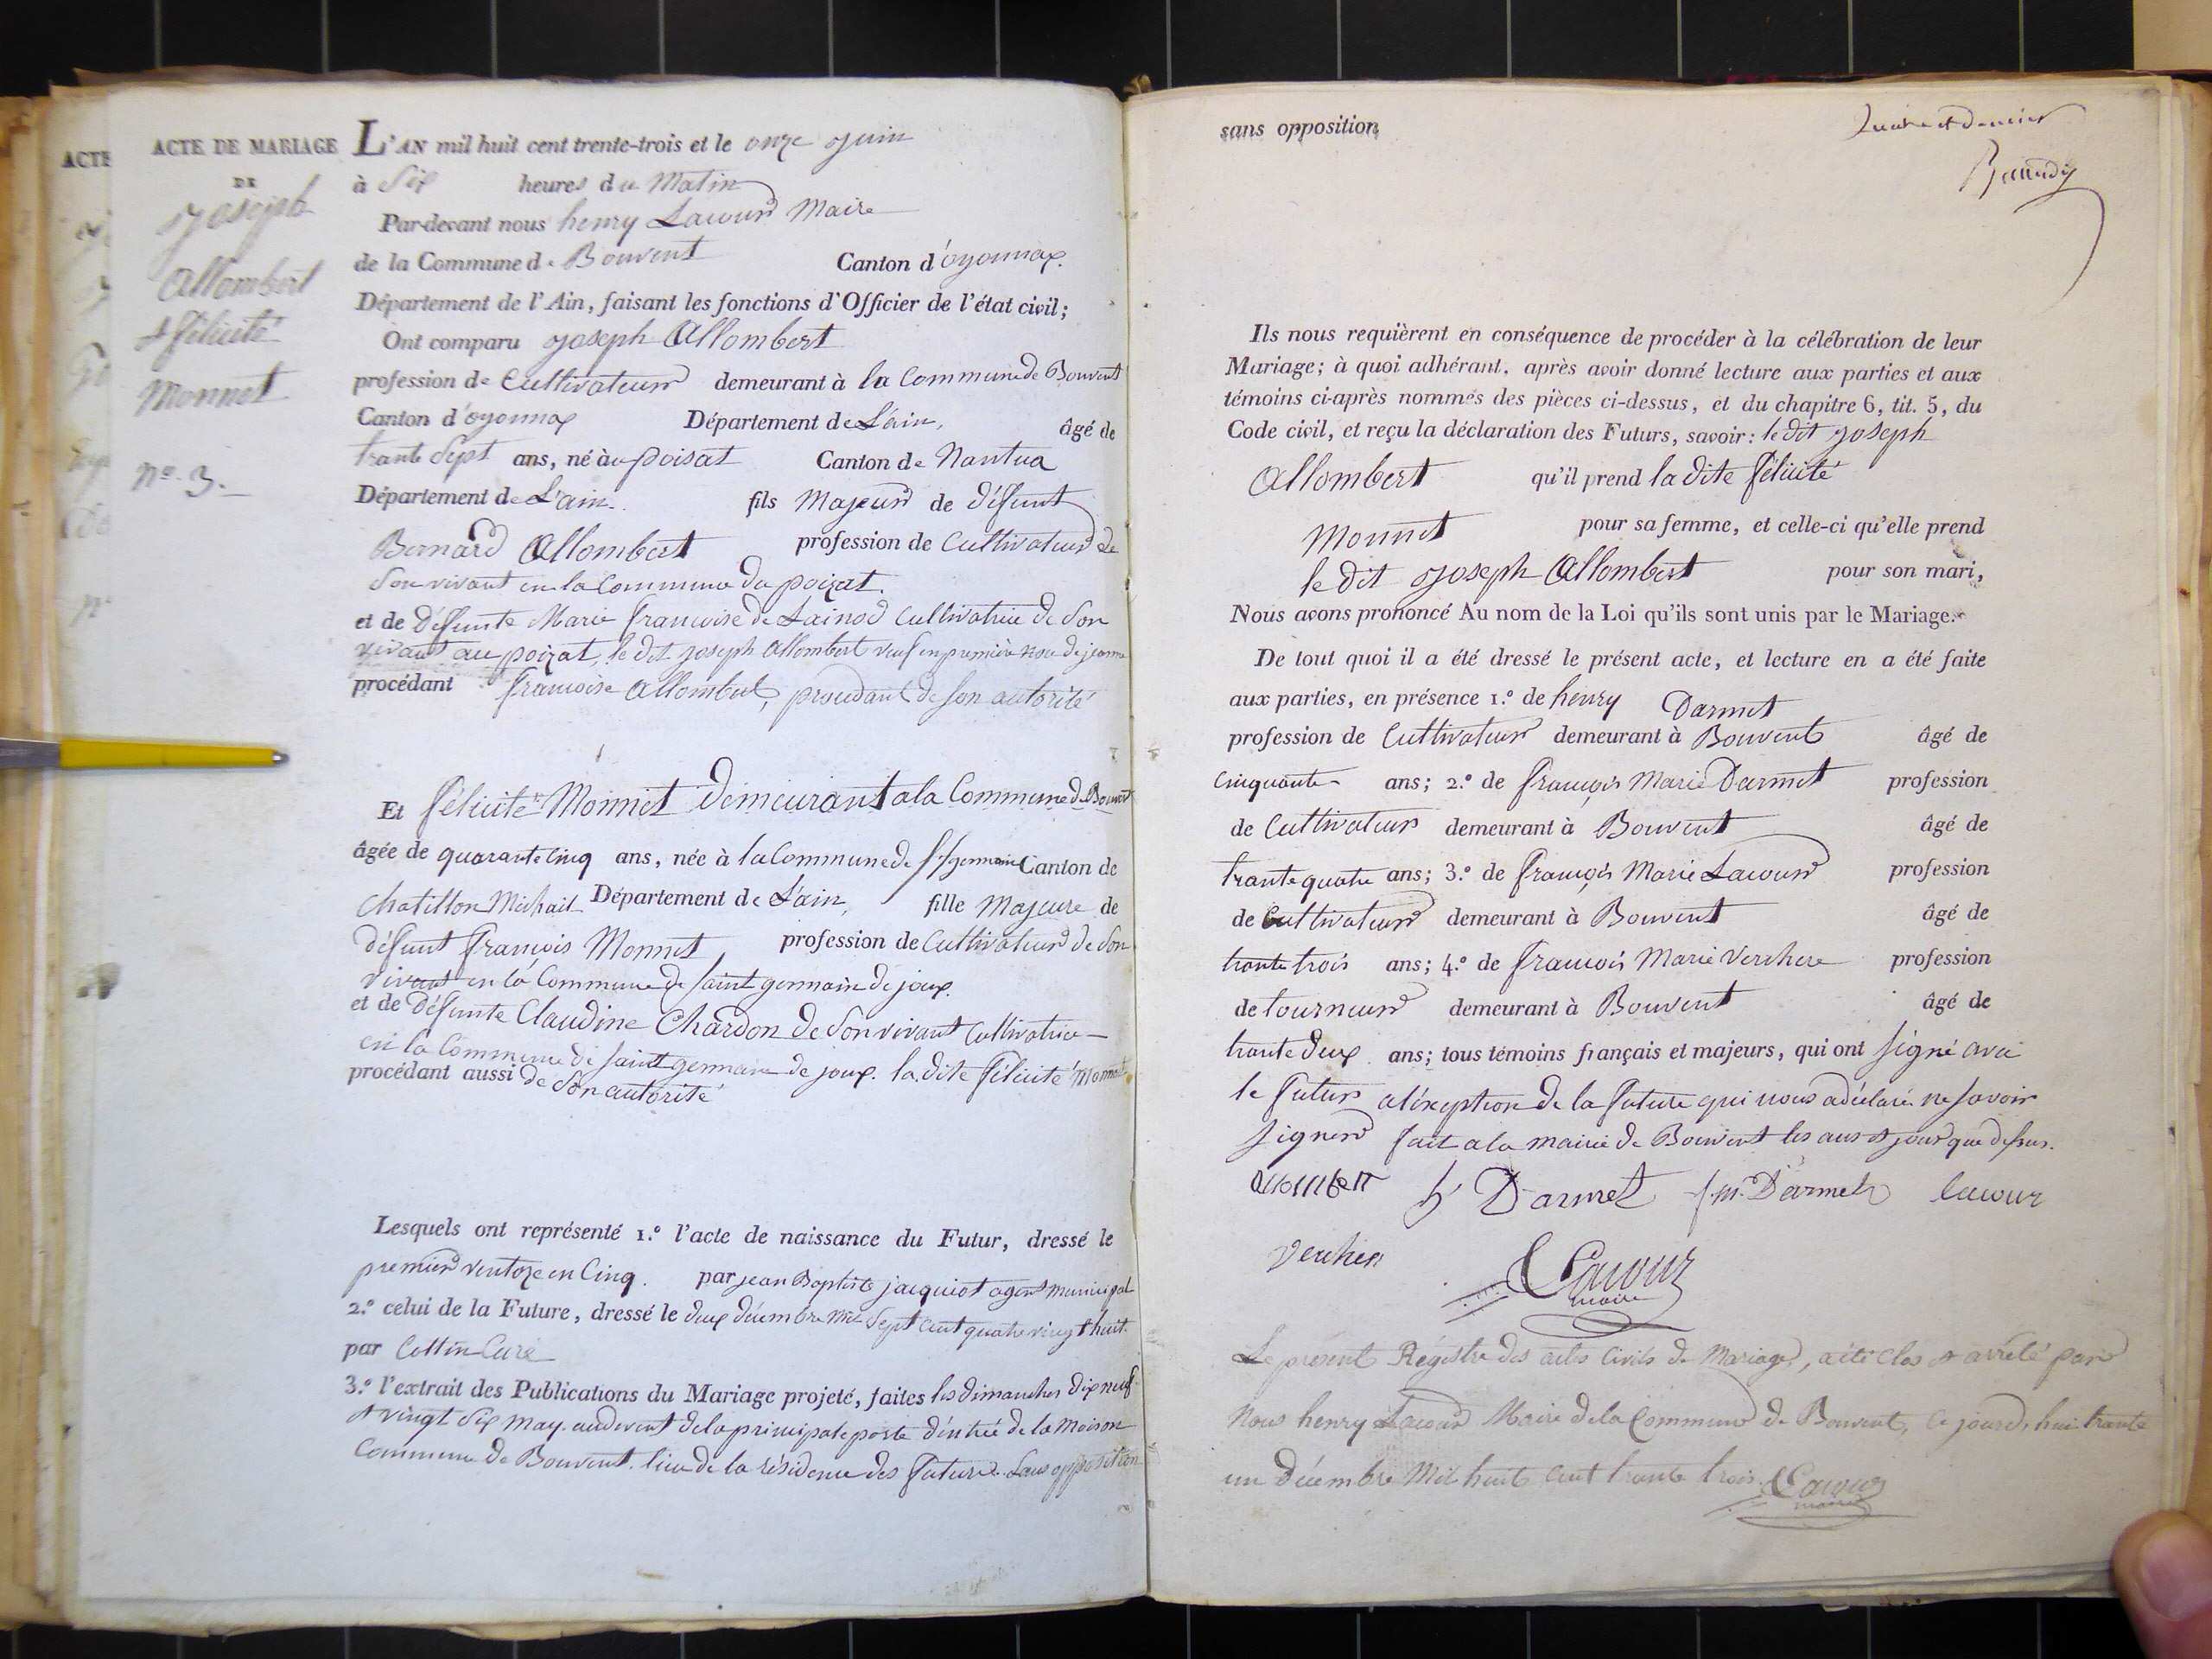 ACTE
ACTE DE MARIAGE
DE
joseph
Allombert
& félicité
Monnet
nº. 3.
L'AN mil huit cent trente-trois et le onze juin
à Six heures du Matin
Par-devant nous henry Lacour Maire
de la Commune de Bouvent Canton d'oyonnax.
Département de l'Ain, faisant les fonctions d'Officier de l'état civil;
Ont comparu joseph Allombert
profession de Cultivateur demeurant à la Commune de Bouvent
Canton d'oyonnax Département de L'ain, âgé de
trante Sept ans, né à au poisat Canton de Nantua
Département de L'ain. fils Majeur de défunt
Bernard Allombert profession de Cultivateur de
Son vivant en la Commune du poizat.
et de défunte Marie françoise de Lainod Cultivatrice de Son
vivant au poizat, le dit joseph Allombert veuf en première noce de jeanne
procédant françoise Allombert, procédant de son autorité
Et félicité Monnet demeurant a la Commune de Bouvent
âgée de quarante cinq ans, née à la Commune de St germain Canton de
Chatillon Michail Département de L'ain, fille Majeure de
défunt françois Monnet profession de Cultivateur de Son
vivant en la Commune de saint germain de joux.
et de défunte Claudine Chardon de Son vivant Cultivatrice
en la Commune de saint germain de joux. la dite félicité Monnet
procédant aussi de Son autorité
Lesquels ont représenté 1.º l'acte de naissance du Futur, dressé le
premier ventoze en Cinq. par jean Baptiste jacquiot agent municipal
2.º celui de la Future, dressé le deux décembre Mil Sept cent quatre vingt huit.
par Cottin Curé
3.º l'extrait des Publications du Mariage projeté, faites les dimanches dix neuf
& vingt Six may. audevent de la principale porte d'entrée de la Maison
Commune de Bouvent. lieu de la résidence des futurs. Sans opposition
sans opposition
Ils nous requièrent en conséquence de procéder à la célébration de leur
Mariage; à quoi adhérant, après avoir donné lecture aux parties et aux
témoins ci-après nommés des pièces ci-dessus, et du chapitre 6, tit. 5, du
Code civil, et reçu la déclaration des Futurs, savoir: le dit joseph
Allombert qu'il prend la dite félicité
Monnet pour sa femme, et celle-ci qu'elle prend
le dit joseph Allombert pour son mari,
Nous avons prononcé Au nom de la Loi qu'ils sont unis par le Mariage.
De tout quoi il a été dressé le présent acte, et lecture en a été faite
aux parties, en présence 1.º de henry Darmet
profession de Cultivateur demeurant à Bouvent âgé de
Cinquante ans; 2.º de françois Marie Darmet profession
de Cultivateur demeurant à Bouvent âgé de
trante quatre ans; 3.º de françois Marie Lacour profession
de Cultivateur demeurant à Bouvent âgé de
trante trois ans; 4.º de françois Marie Verchere profession
de tourneur demeurant à Bouvent âgé de
trante deux ans; tous témoins français et majeurs, qui ont signé avec
le futur a l'éxeption de la future qui nous a déclaré ne savoir
signer fait a la mairie de Bouvent les ans & jour que dessus.
Allombert h Darmet f. m. Darmet lacour
Vercher
Lacour
maire
Le présent Régistre des actes Civils de Mariage, a été Clos & arrêté par
Nous henry Lacour Maire de la Commune de Bouvent, Ce jourd'hui trante
un Décembre Mil huit Cent trante trois. Lacour
maire